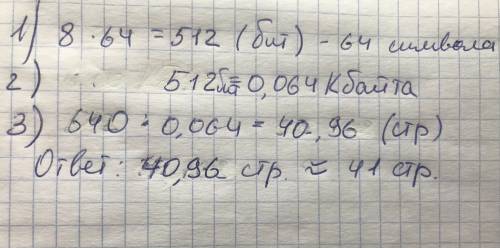 1) 8 · 64 = 512 (бит) - 64 символа
2) 512бит = 0,064 Кбайта
3) 640 · 0,064 = 40,96 (стр)
Ответ: 40,96 стр. ≈ 41 стр.